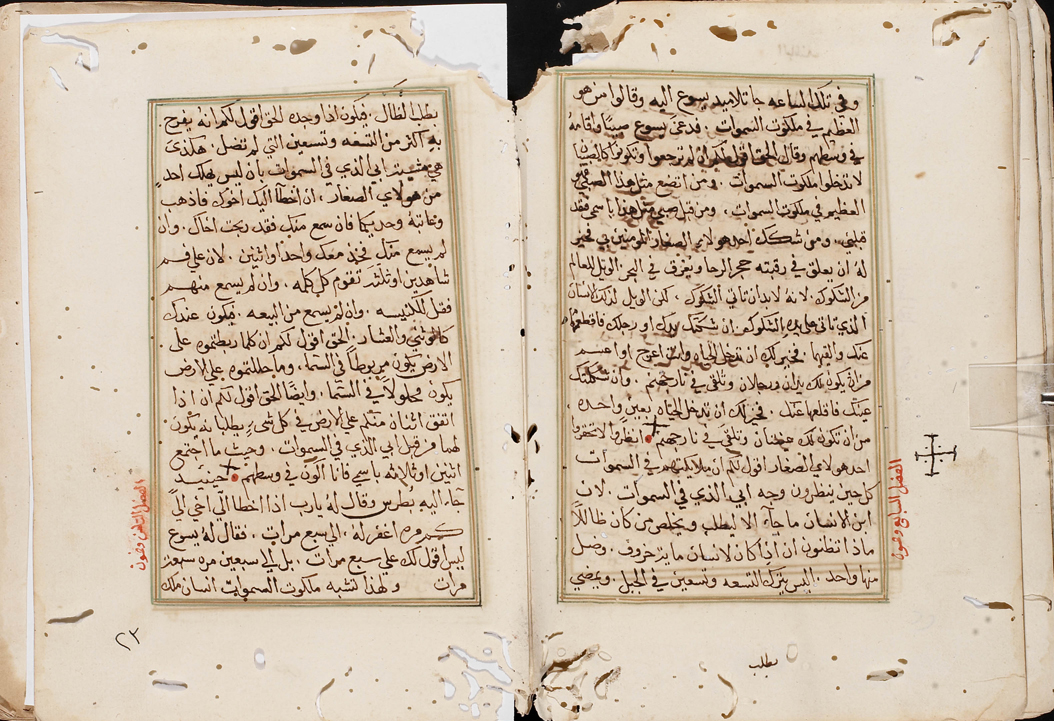 وفي تلك الساعه جا تلاميد يسوع اليه وقالوا من هو
العظيم في ملكوت السموات . فدعى يسوع صبيًا واقامهُ
في وسطهم وقال الحق اقول لكم ان لم ترجعوا وتكونوا كالصبيان
لا تدخلوا ملكوت السموات . ومن اتضع مثل هذا الصبي فهو
العظيم في ملكوت السموات . ومن قبل صبي مثل هذا باسمي فقد
قبلني . ومن شكك احد هولاي الصغار المومنين بي فخير
له ان يعلق في رقبته حجر الرحا ويغرق في البحر الويل للعالم
من الشكوك . لانهُ لابد ان تاتي الشكوك . لكن الويل لذلك الانسان
الذي تاتي على يده الشكوك ان شككتك يدك او رجلك فاقطعها
عنك والقيها . فخير لك ان تدخل الحياه وانت اعرج او اعسم
من ان يكون لك يدان ورجلان وتلقى في نار جهنم . وان شككتك
عينك فاقلعها عنك . فخير لك ان تدخل الحياه بعين واحده
من ان تكون لك عينان وتلقى في نار جهنم انظروا لا تحقروا
احد هولاي الصغار اقول لكم ان ملايكتهم في السموات
كل حين ينظرون وجه ابي الذي في السموات . لان
ابن الانسان ما جآء الا ليطلب ويخلص من كان ظالاً
ماذا تظنون ان اذا كان لانسان مايه خروف . وضل
منها واحد . اليس يترك التسعه وتسعين في الجبل . ويمضي
يطلب
الفصل السابع وخمسون
يطلب الضال . فيكون اذا وجده الحق اقول لكم انه يفرح
به اكثر من التسعه وتسعين التي لم تضل . هكذى
هي مشيت ابي الذي في السموات بان ليس يهلك احد
من هولاي الصغار . ان اخطآ اليك اخوك فاذهب
وعاتبهُ وحديكما فان سمع منك فقد ربحت اخاك . وان
لم يسمع منك فخذ معك واحد او اثنين . لان على فم
شاهدين او ثلثه تقوم كل كلمه . وان لم يسمع منهم
فقل للكنيسه . وان لم يسمع من البيعه . فيكون عندك
كالوثني والعشار . الحق اقول لكم ان كلما ربطتموه على
الارض يكون مربوطاً في السمآ . وما حللتموه على الارض
يكون محلولاً في السّما . وايضًا الحق اقول لكم ان اذا
اتفق اثنان منكم على الارض في كل شي يطلبانه يكون
لهما من قبل ابي الذي في السموات . وحيث ما اجتمع
اثنين او ثلاثه باسمي فانا اكون في وسطهم حينيد
جآء اليه بطرس وقال لهُ يارب اذا اخطا الّي اخي الي
كم مره اغفر لهُ . الى سبع مرات . فقال لهُ يسوع
ليس اقول لك على سبع مرات . بل الى سبعين مره سبعة
مرات ولهذا تشبه ملكوت السموات انسان ملك
الفصل الثامن وخمسون
٢٣